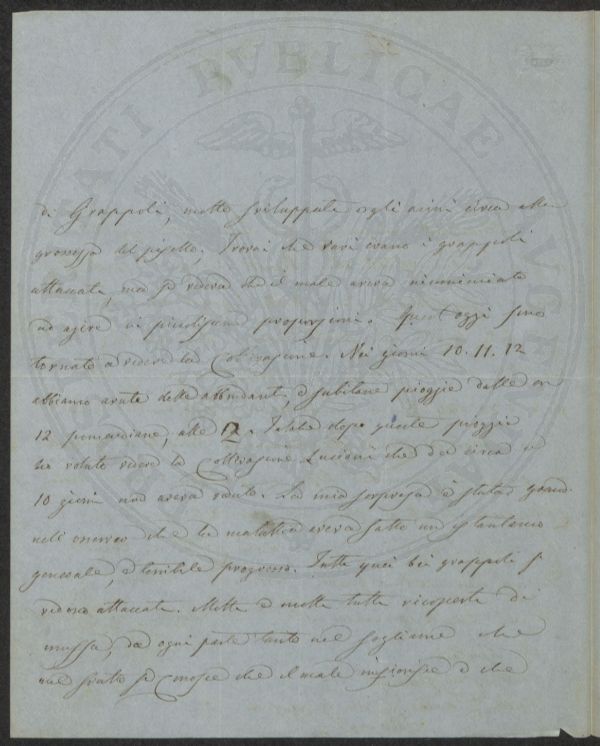 di Grappoli, molto sviluppate egli acini circa alla
grossezza del pisello; Trovai che rari erano i grappoli
attaccati, ma si vedeva che il male aveva ricominciato
ad agire in piccolissime proporzioni. Quest'oggi sono
tornato a vedere la Coltivazione. Nei giorni 10. 11. 12
abbiamo avute delle abbondanti, e subitane pioggie dalle ore
12 pomeridiane, alle 2. dopo queste pioggie
ho voluto vedere la Coltivazione Luciani che da circa
10 giorni non aveva veduto. La mia sorpresa è stata grande
nell' osservare che la malattia aveva fatto un istantaneo
generale, e terribile progresso. Tutti quei bei grappoli si
vedono attaccati. Molte e molte tutte ricoperte di
muffa, da ogni parte tanto nel fogliame che
nel frutto si conosce che il male inferocisce e che
PVBLICAE